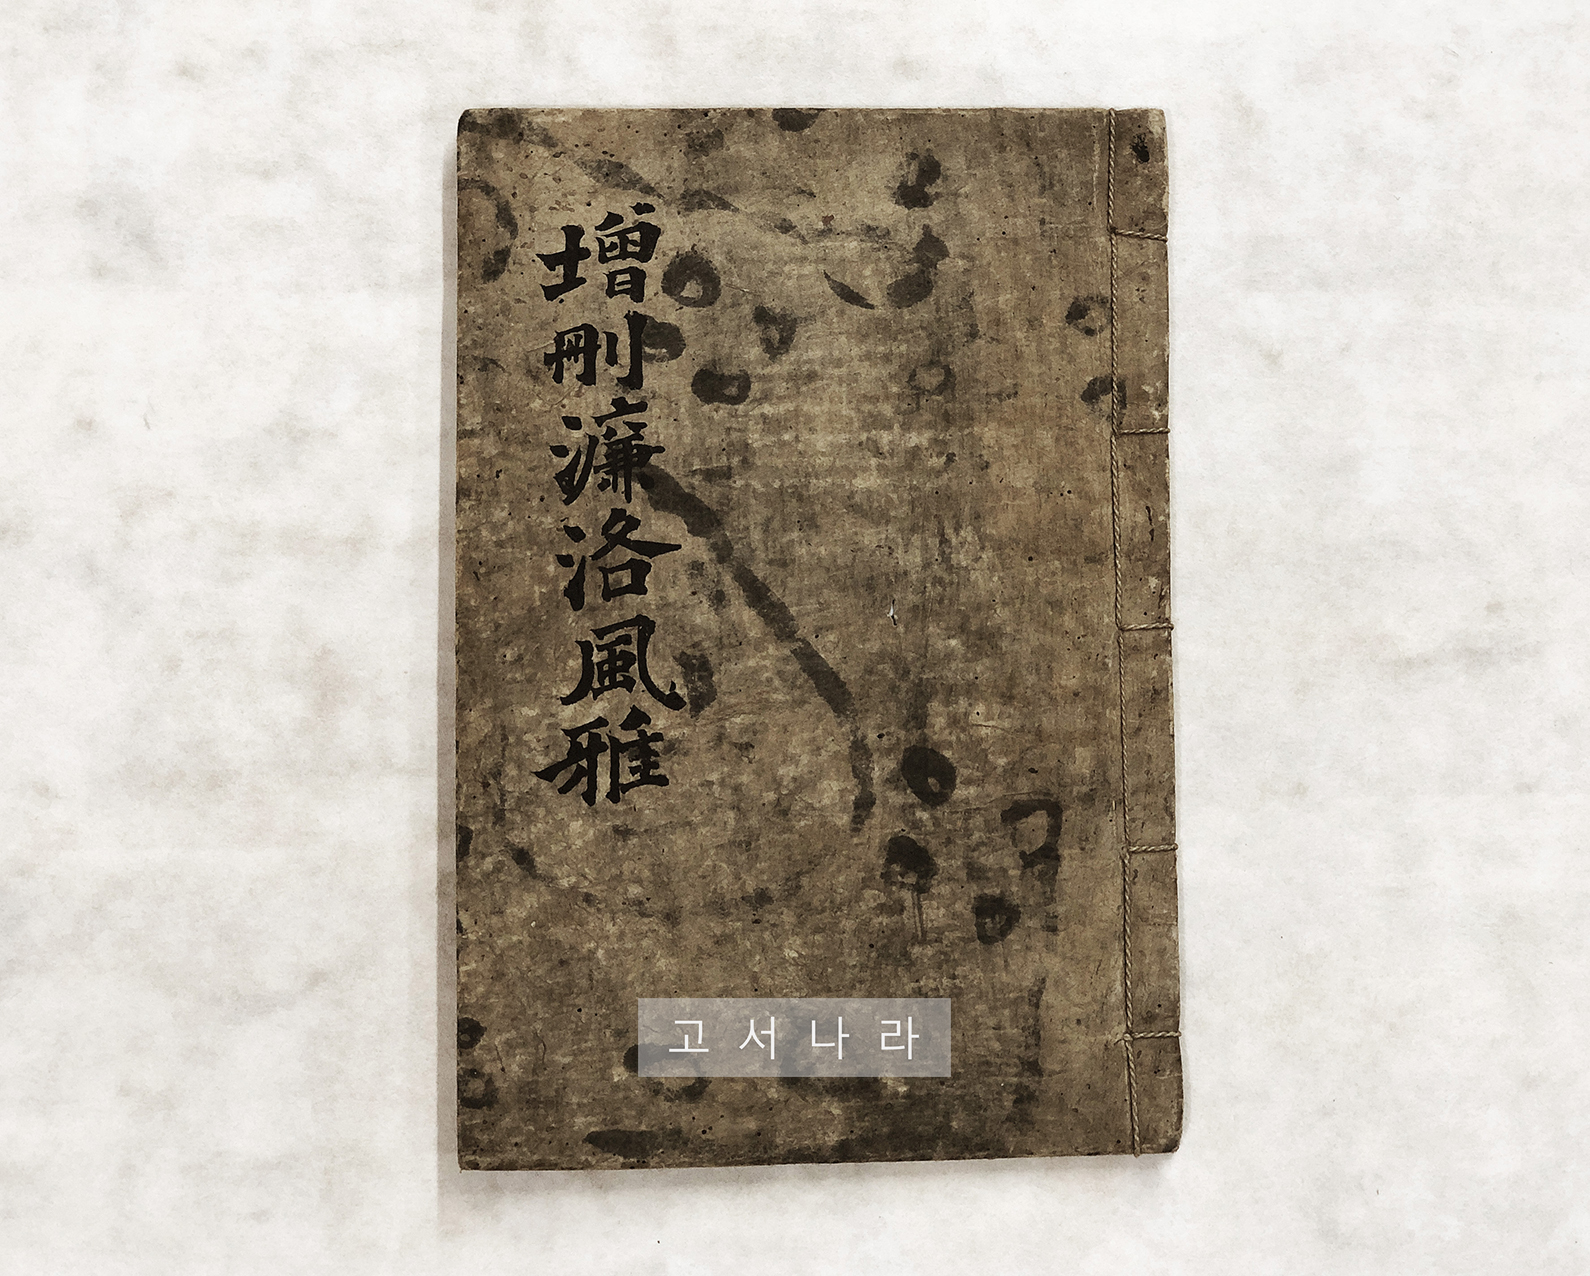 增刪濂洛風雅
고서나라